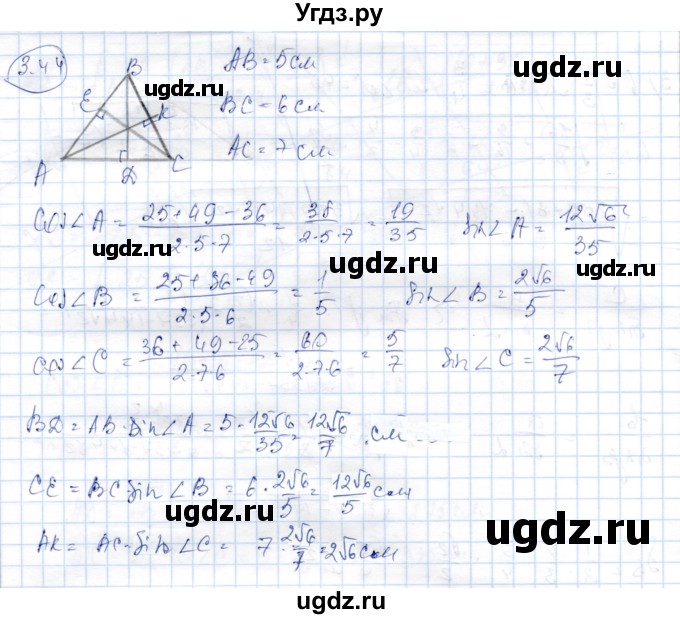 Угдз.ру
3.44
B
E
K
A
D
C
AB = 5 см
BC = 6 см
AC = 7 см
ugdz.ru
ugdz.ru
cos∠A = (25+49−36)/(2·5·7) = 38/(2·5·7) = 19/35  sin∠A = 12√6/35
ugdz.ru
ugdz.ru
cos∠B = (25+36−49)/(2·5·6) = 1/5  sin∠B = 2√6/5
cos∠C = (36+49−25)/(2·7·6) = 60/(2·7·6) = 5/7  sin∠C = 2√6/7
ugdz.ru
BD = AB·sin∠A = 5·12√6/35 = 12√6/7 см
CE = BC sin∠B = 6·2√6/5 = 12√6/5 см
ugdz.ru
ugdz.ru
AK = AC·sin∠C = 7·2√6/7 = 2√6 см
ugdz.ru